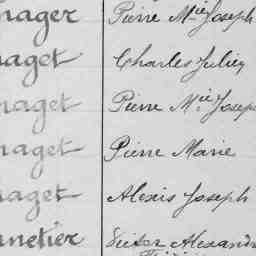 nager Pierre Mie Joseph
naget Charles Julien
naget Pierre Mie Joseph
naget Pierre Marie
naget Alexis Joseph
nnetier Victor Alexandre